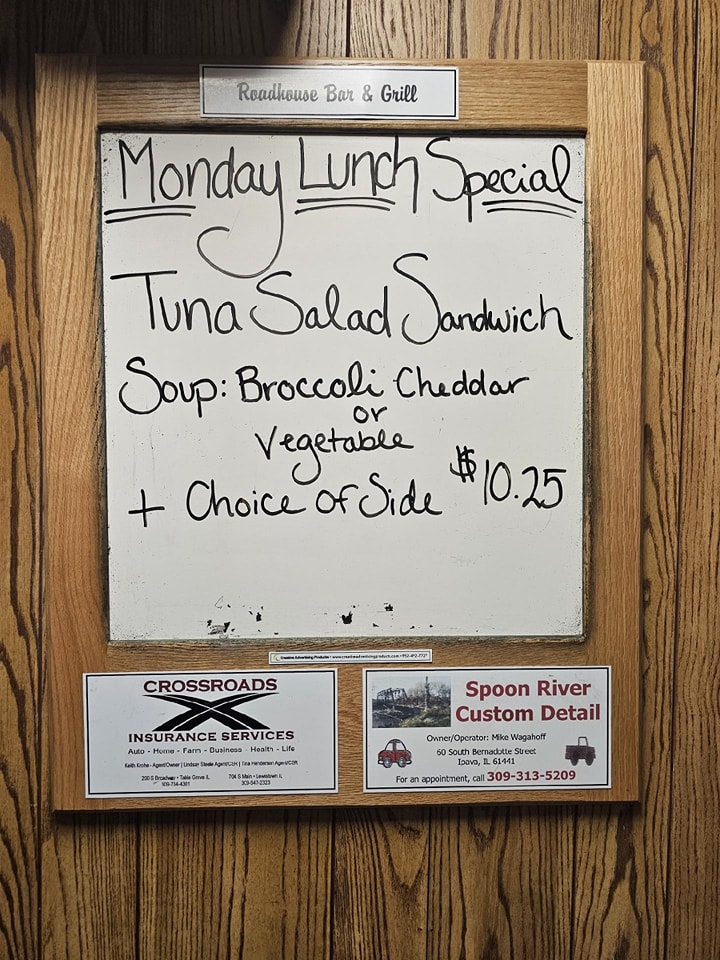 Roadhouse Bar & Grill
Monday Lunch Special
Tuna Salad Sandwich
Soup: Broccoli Cheddar
or
Vegetable
+ Choice of Side $10.25
Creative Advertising Products • www.creativeadvertisingproducts.com •
CROSSROADS
INSURANCE SERVICES
Auto - Home - Farm - Business - Health - Life
Keith Krohe - Agent/Owner | Lindsay Steele Agent/CSR | Tina Henderson Agent/CSR
200 S Broadway • Table Grove IL
704 S Main • Lewistown IL
309-547-2323
Spoon River
Custom Detail
Owner/Operator: Mike Wagahoff
60 South Bernadotte Street
Ipava, IL 61441
For an appointment, call 309-313-5209